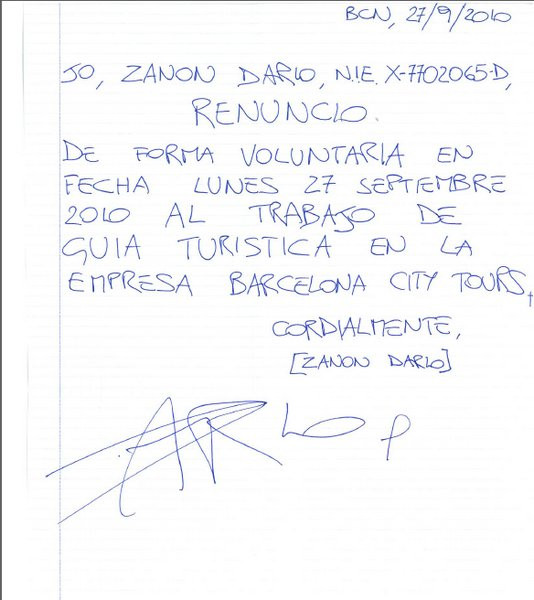 BCN, 27/9/2010
JO, ZANON DARIO, N.I.E. X-7702065-D,
RENUNCIO.
DE FORMA VOLUNTARIA EN
FECHA LUNES 27 SEPTIEMBRE
2010 AL TRABAJO DE
GUIA TURISTICA EN LA
EMPRESA BARCELONA CITY TOURS,
CORDIALMENTE,
[ZANON DARIO]